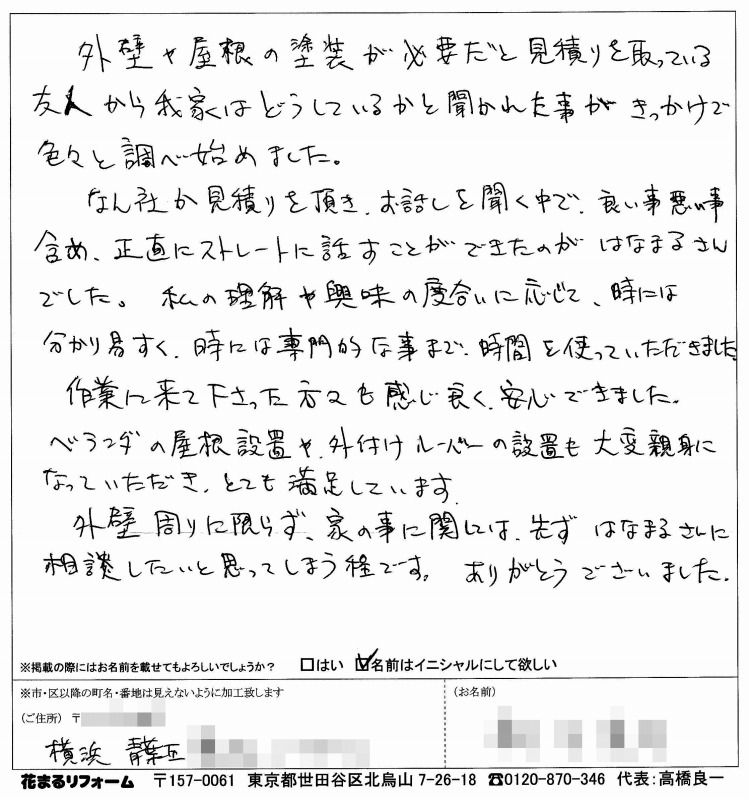 外壁や屋根の塗装が必要だと見積りを取っている
友人から我家はどうしているかと聞かれた事がきっかけで
色々と調べ始めました。
なん社か見積りを頂き、お話しを聞く中で、良い事悪い事
含め、正直にストレートに話すことができたのがはなまるさん
でした。私の理解や興味の度合いに応じて、時には
分かり易すく、時には専門的な事まで、時間を使っていただきました
作業に来て下さった方々も感じ良く、安心できました。
ベランダの屋根設置や、外付けルーバーの設置も大変親身に
なっていただき、とても満足しています。
外壁周りに限らず、家の事に関しては、先ずはなまるさんに
相談したいと思ってしまう程です。ありがとうございました。
※掲載の際にはお名前を載せてもよろしいでしょうか？ □はい ☑名前はイニシャルにして欲しい
※市・区以降の町名・番地は見えないように加工致します
(ご住所) 〒
(お名前)
横浜 青葉区
花まるリフォーム 〒157-0061 東京都世田谷区北烏山 7-26-18 ☎0120-870-346 代表:高橋良一